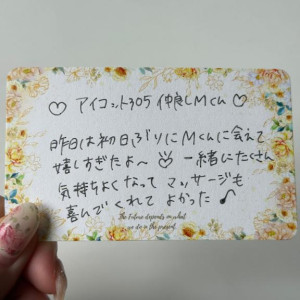 ♡ アイコット305 仲良しMくん ♡
昨日は初日ぶりにMくんに会えて
嬉しすぎたよ〜 一緒にたくさん
気持ちよくなって マッサージも
喜んでくれて よかった♪
The Future depends on what
we do in the present